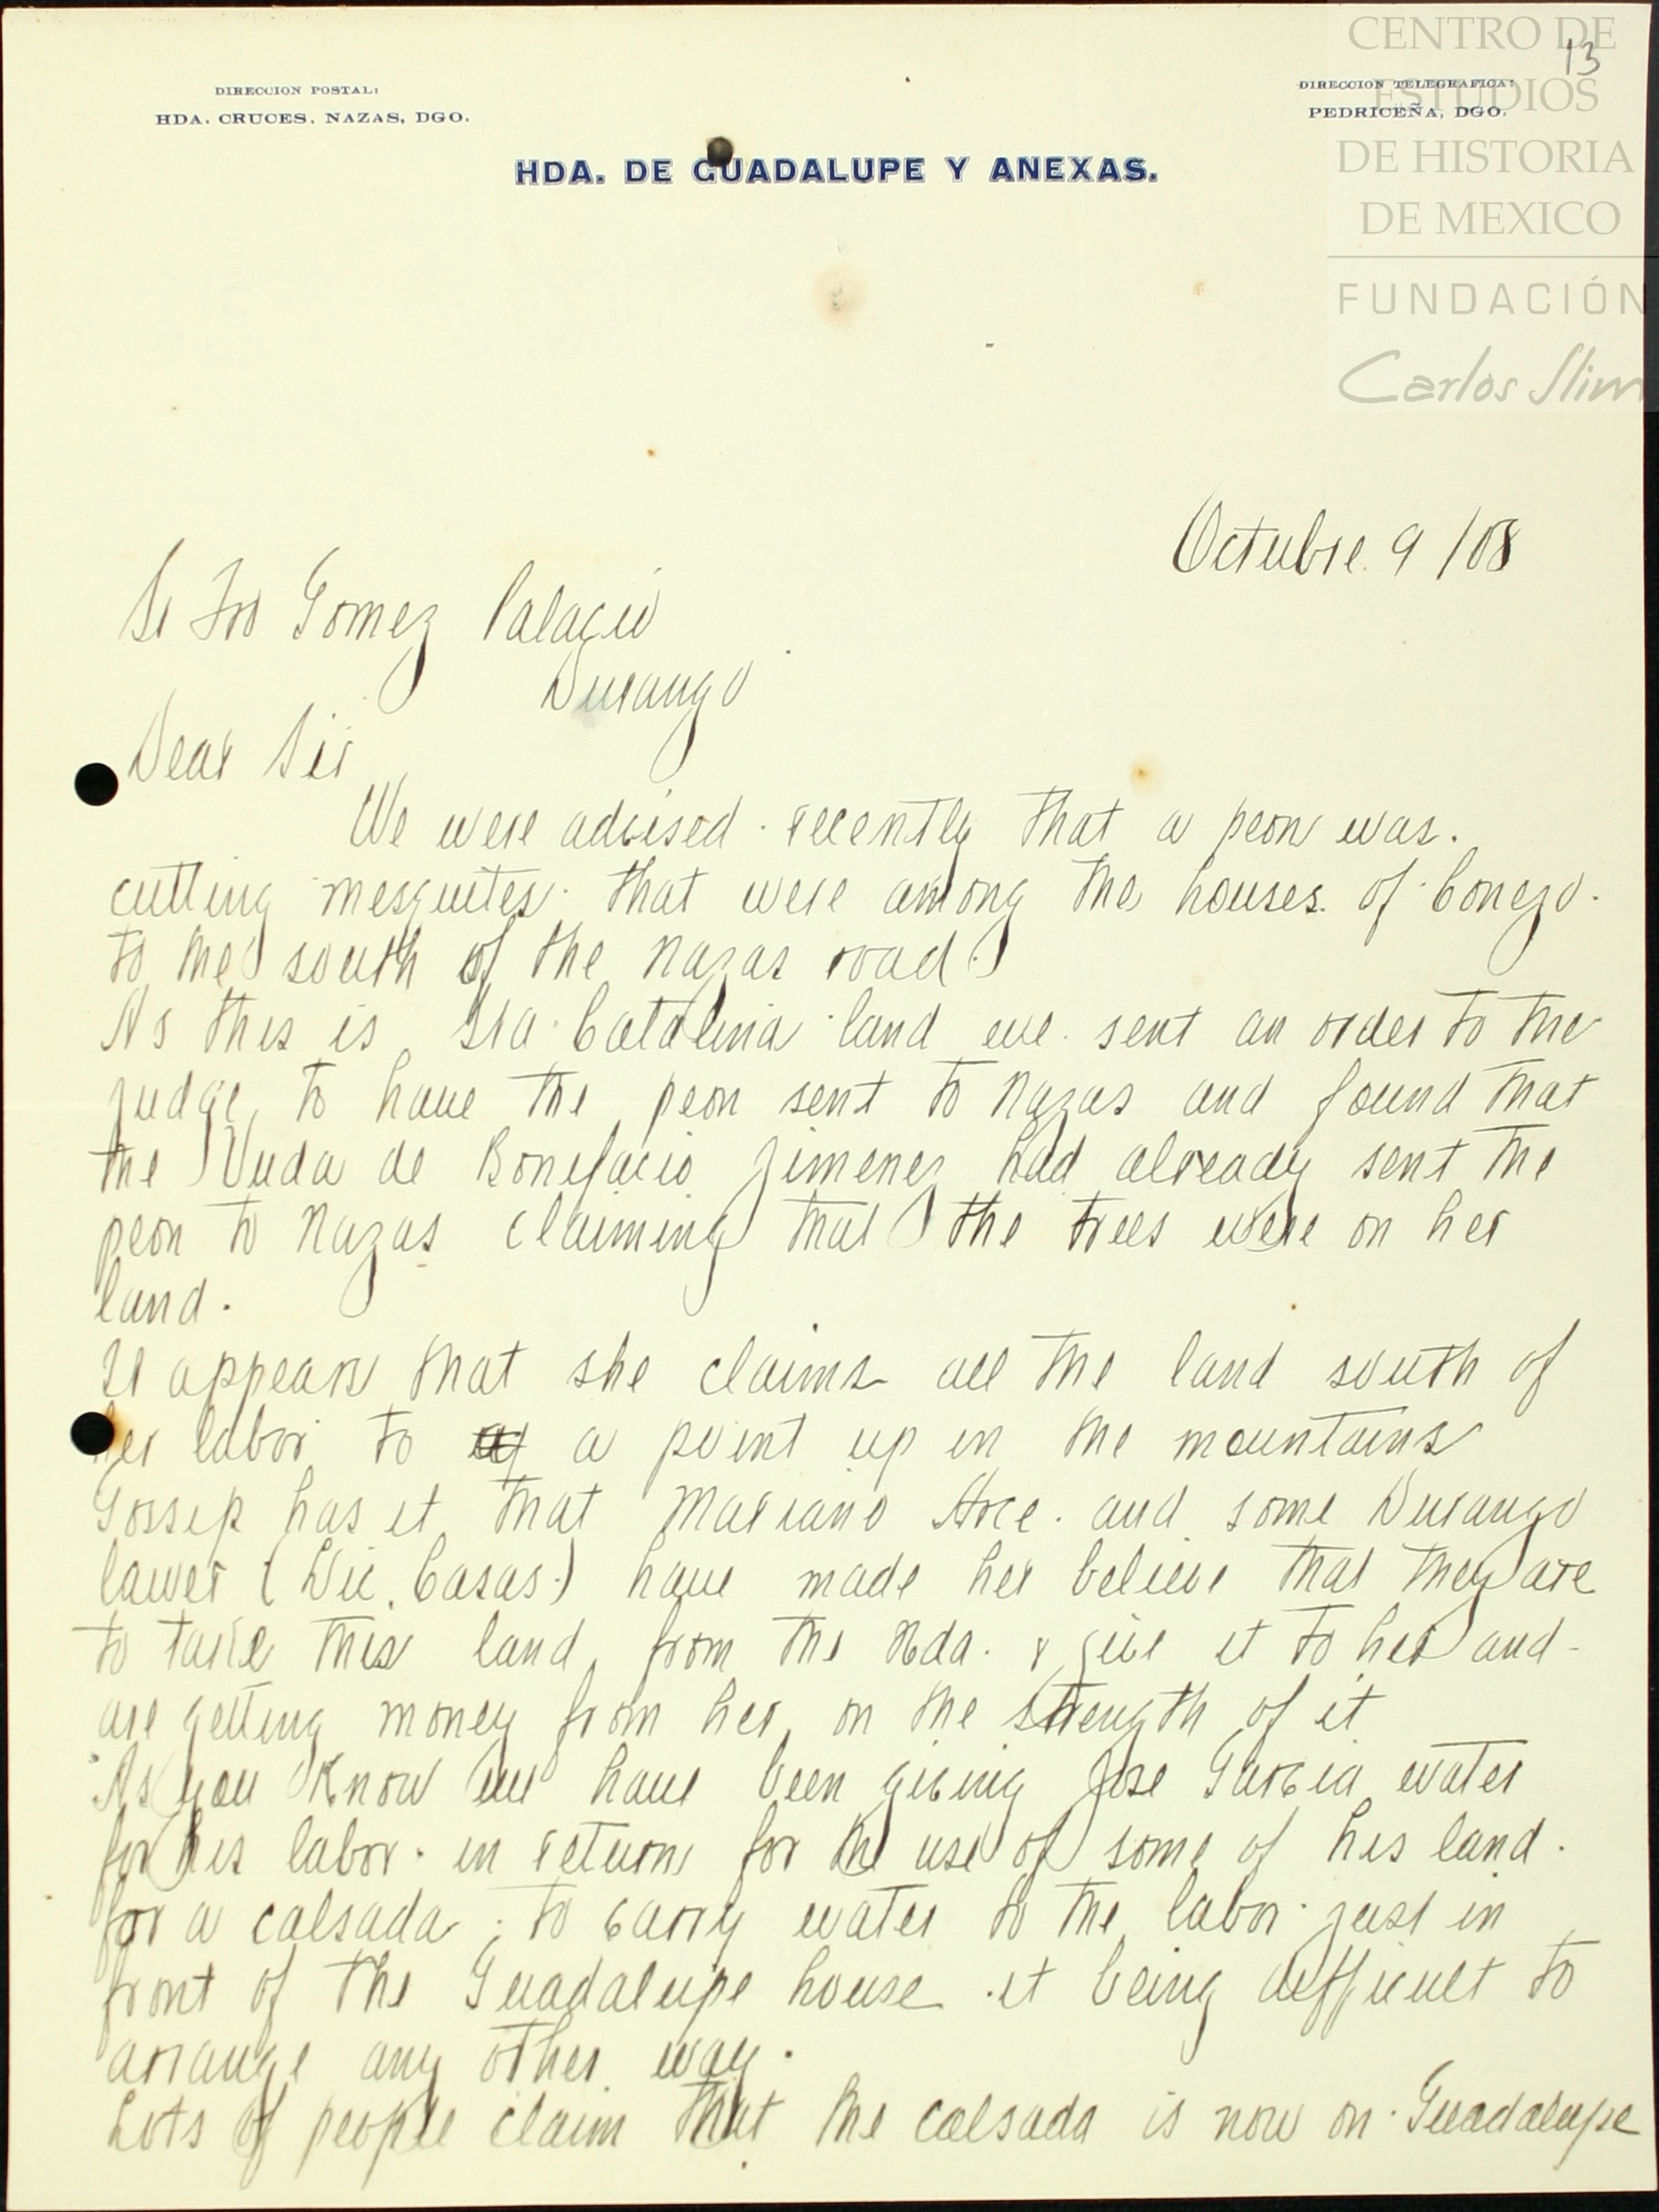 CENTRO DE
ESTUDIOS
DE HISTORIA
DE MEXICO
FUNDACIÓN
Carlos Slim
13
DIRECCION POSTAL:
HDA. CRUCES, NAZAS, DGO.
DIRECCION TELEGRAFICA:
PEDRICEÑA, DGO.
HDA. DE GUADALUPE Y ANEXAS.
Octubre 9 /08
Sr Fro Gomez Palacio
Durango
Dear Sir
We were advised recently that a peon was
cutting mesquites that were among the houses of Conejo
to the south of the Nazas road.
As this is Sta Catalina land we sent an order to the
judge to have the peon sent to Nazas and found that
the Vuda de Bonifacio Jimenez had already sent the
peon to Nazas claiming that the trees were on her
land.
It appears that she claims all the land south of
her labor to a point up in the mountains
Gossip has it that Mariano Arce and some Durango
lawer (Lic. Casas) have made her believe that they are
to take this land from the Hda. & give it to her and
are getting money from her on the strength of it
As you know we have been giving Jose Garcia water
for his labor in return for the use of some of his land
for a calsada, to carry water to the labor just in
front of the Guadalupe house it being difficult to
arrange any other way.
Lots of people claim that the calsada is now on Guadalupe